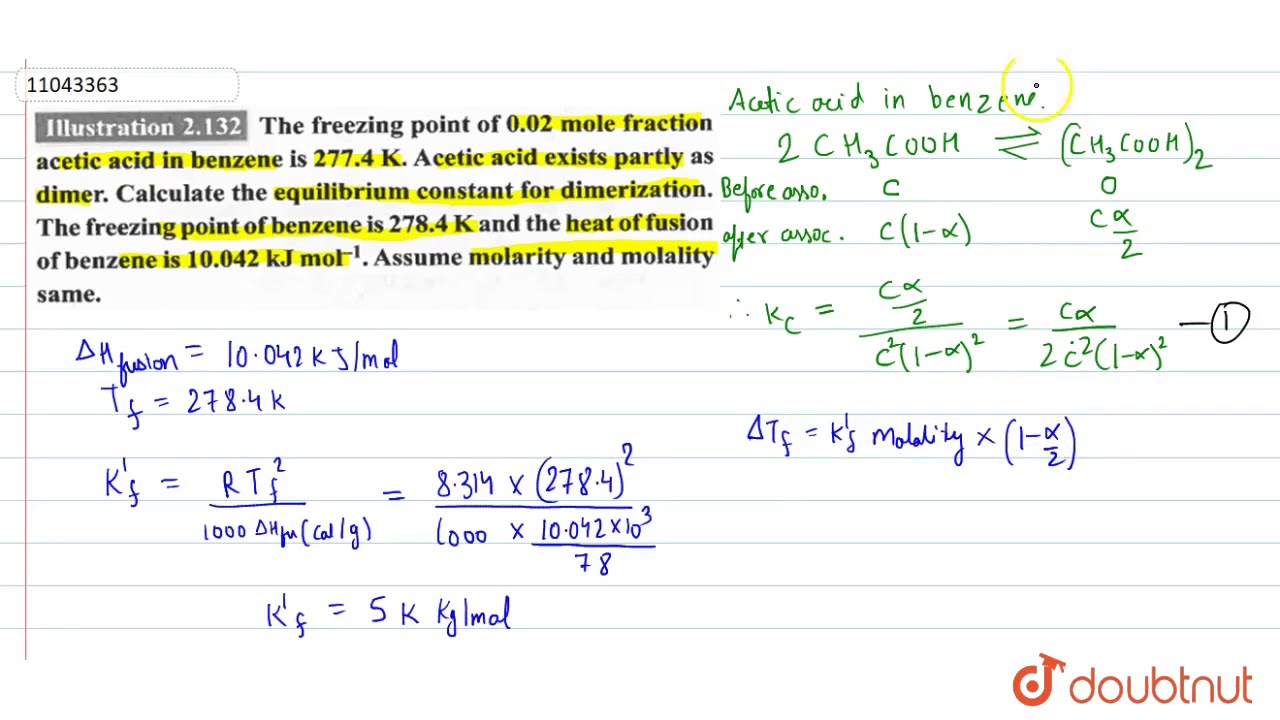 11043363
Illustration 2.132 The freezing point of 0.02 mole fraction
acetic acid in benzene is 277.4 K. Acetic acid exists partly as
dimer. Calculate the equilibrium constant for dimerization.
The freezing point of benzene is 278.4 K and the heat of fusion
of benzene is 10.042 kJ mol⁻¹. Assume molarity and molality
same.
ΔH fusion = 10.042 kJ/mol
T_f = 278.4 k
K'_f = R T_f² / 1000 ΔH_fu (Cal/g) = 8.314 × (278.4)² / 1000 × 10.042×10³ / 78
K'_f = 5 K Kg/mol
Acetic acid in benzene.
2 CH₃COOH ⇌ (CH₃COOH)₂
Before asso. C 0
after assoc. C(1-α) C α/2
∴ K_C = Cα/2 / C²(1-α)² = Cα / 2C²(1-α)² — ①
ΔT_f = K'_f molality × (1-α/2)
doubtnut